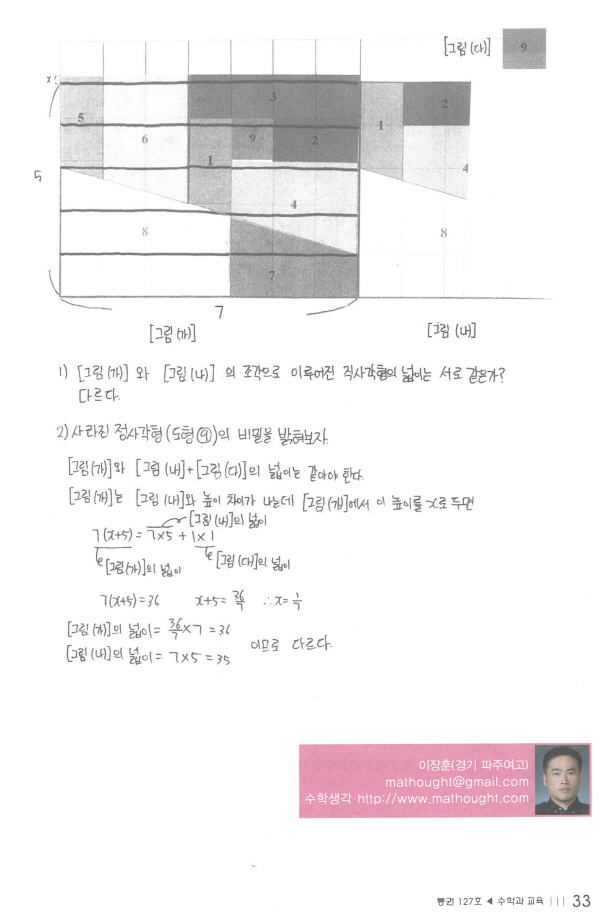 [그림(다)]
9
x
5
6
3
9
2
1
4
8
7
5
7
1
2
4
8
[그림(가)]
[그림(나)]
1) [그림(가)] 와 [그림(나)] 의 조각으로 이루어진 직사각형의 넓이는 서로 같은가?
다르다.
2) 사라진 정사각형(도형⑨)의 비밀을 밝혀보자.
[그림(가)]와 [그림(나)]+[그림(다)]의 넓이는 같아야 한다.
[그림(가)]는 [그림(나)]와 높이 차이가 나는데 [그림(가)]에서 이 높이를 x로 두면
[그림(나)]의 넓이
7(x+5) = 7×5 + 1×1
[그림(가)]의 넓이 [그림(다)]의 넓이
7(x+5)=36 x+5=36/7 ∴x=1/7
[그림(가)]의 넓이= 36/7×7 =36
이므로 다르다.
[그림(나)]의 넓이= 7×5 =35
이장훈(경기 파주여고)
mathought@gmail.com
수학생각 http://www.mathought.com
통권 127호 ◀ 수학과 교육 ||| 33